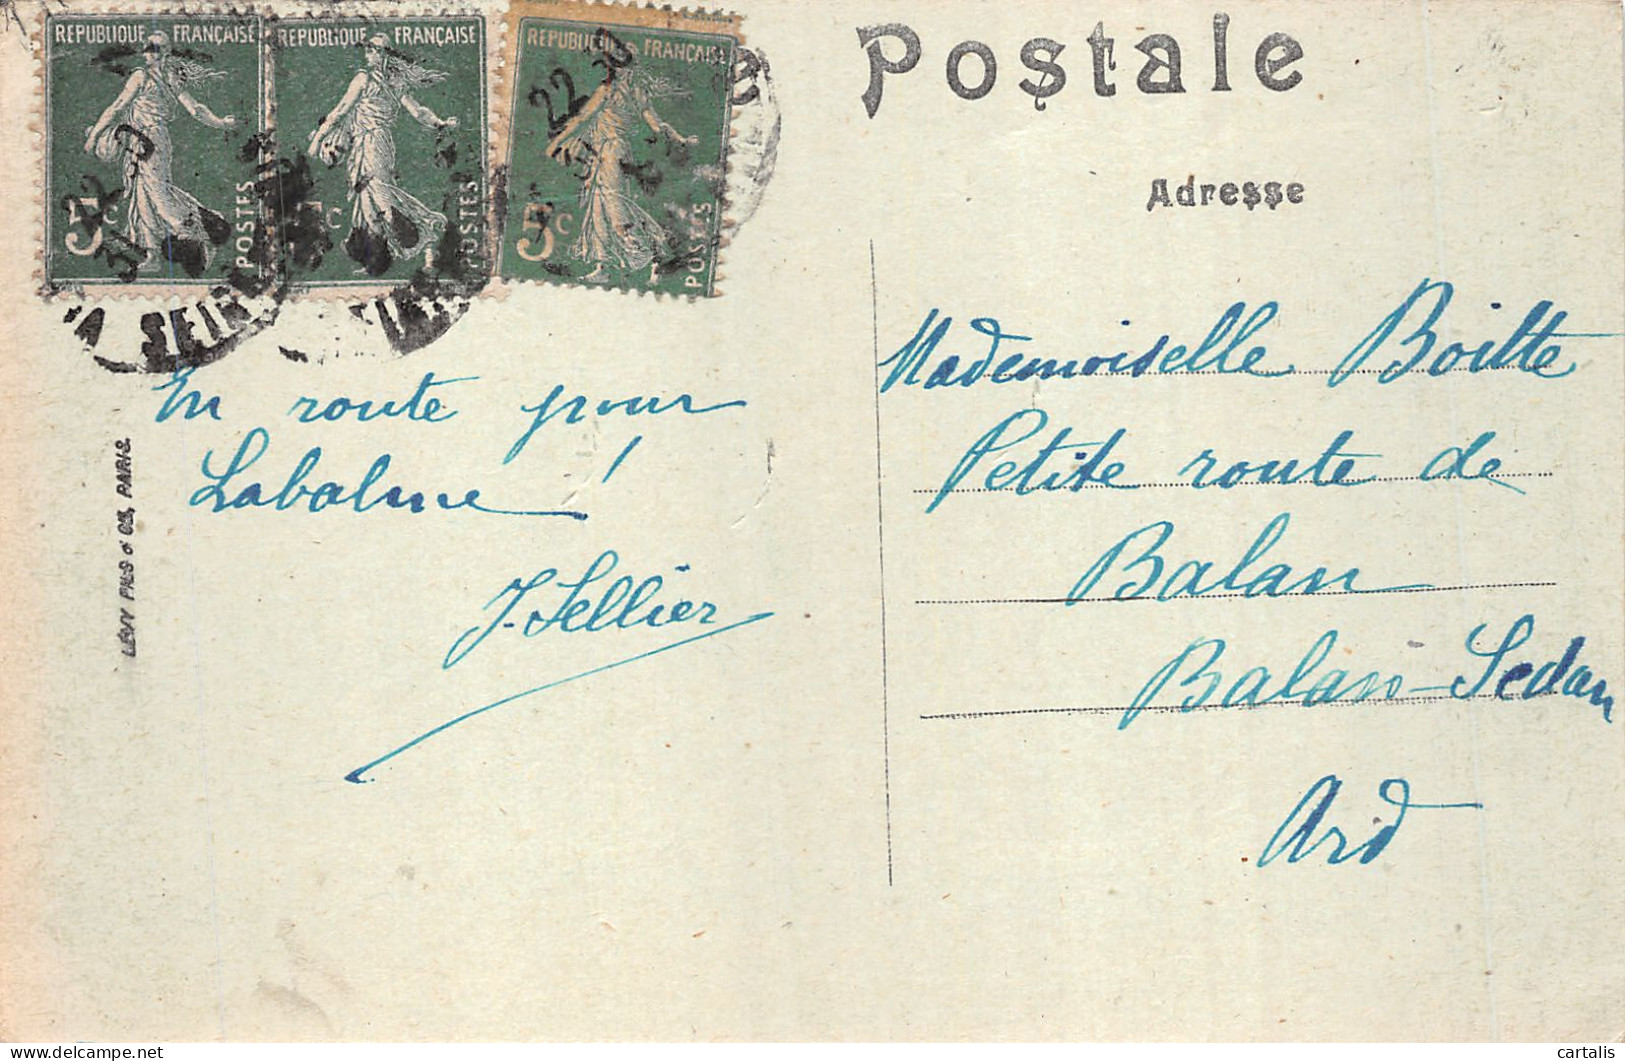 REPUBLIQUE FRANÇAISE
5c
POSTES
REPUBLIQUE FRANÇAISE
POSTES
REPUBLIQUE FRANÇAISE
5c
POSTES
22 30
31
22 30
Postale
Adresse
En route pour
Labalme !
J. Sellier
LÉVY FILS & Cie, PARIS
Mademoiselle Boitte
Petite route de
Balan
Balan-Sedan
Ard
cartalis